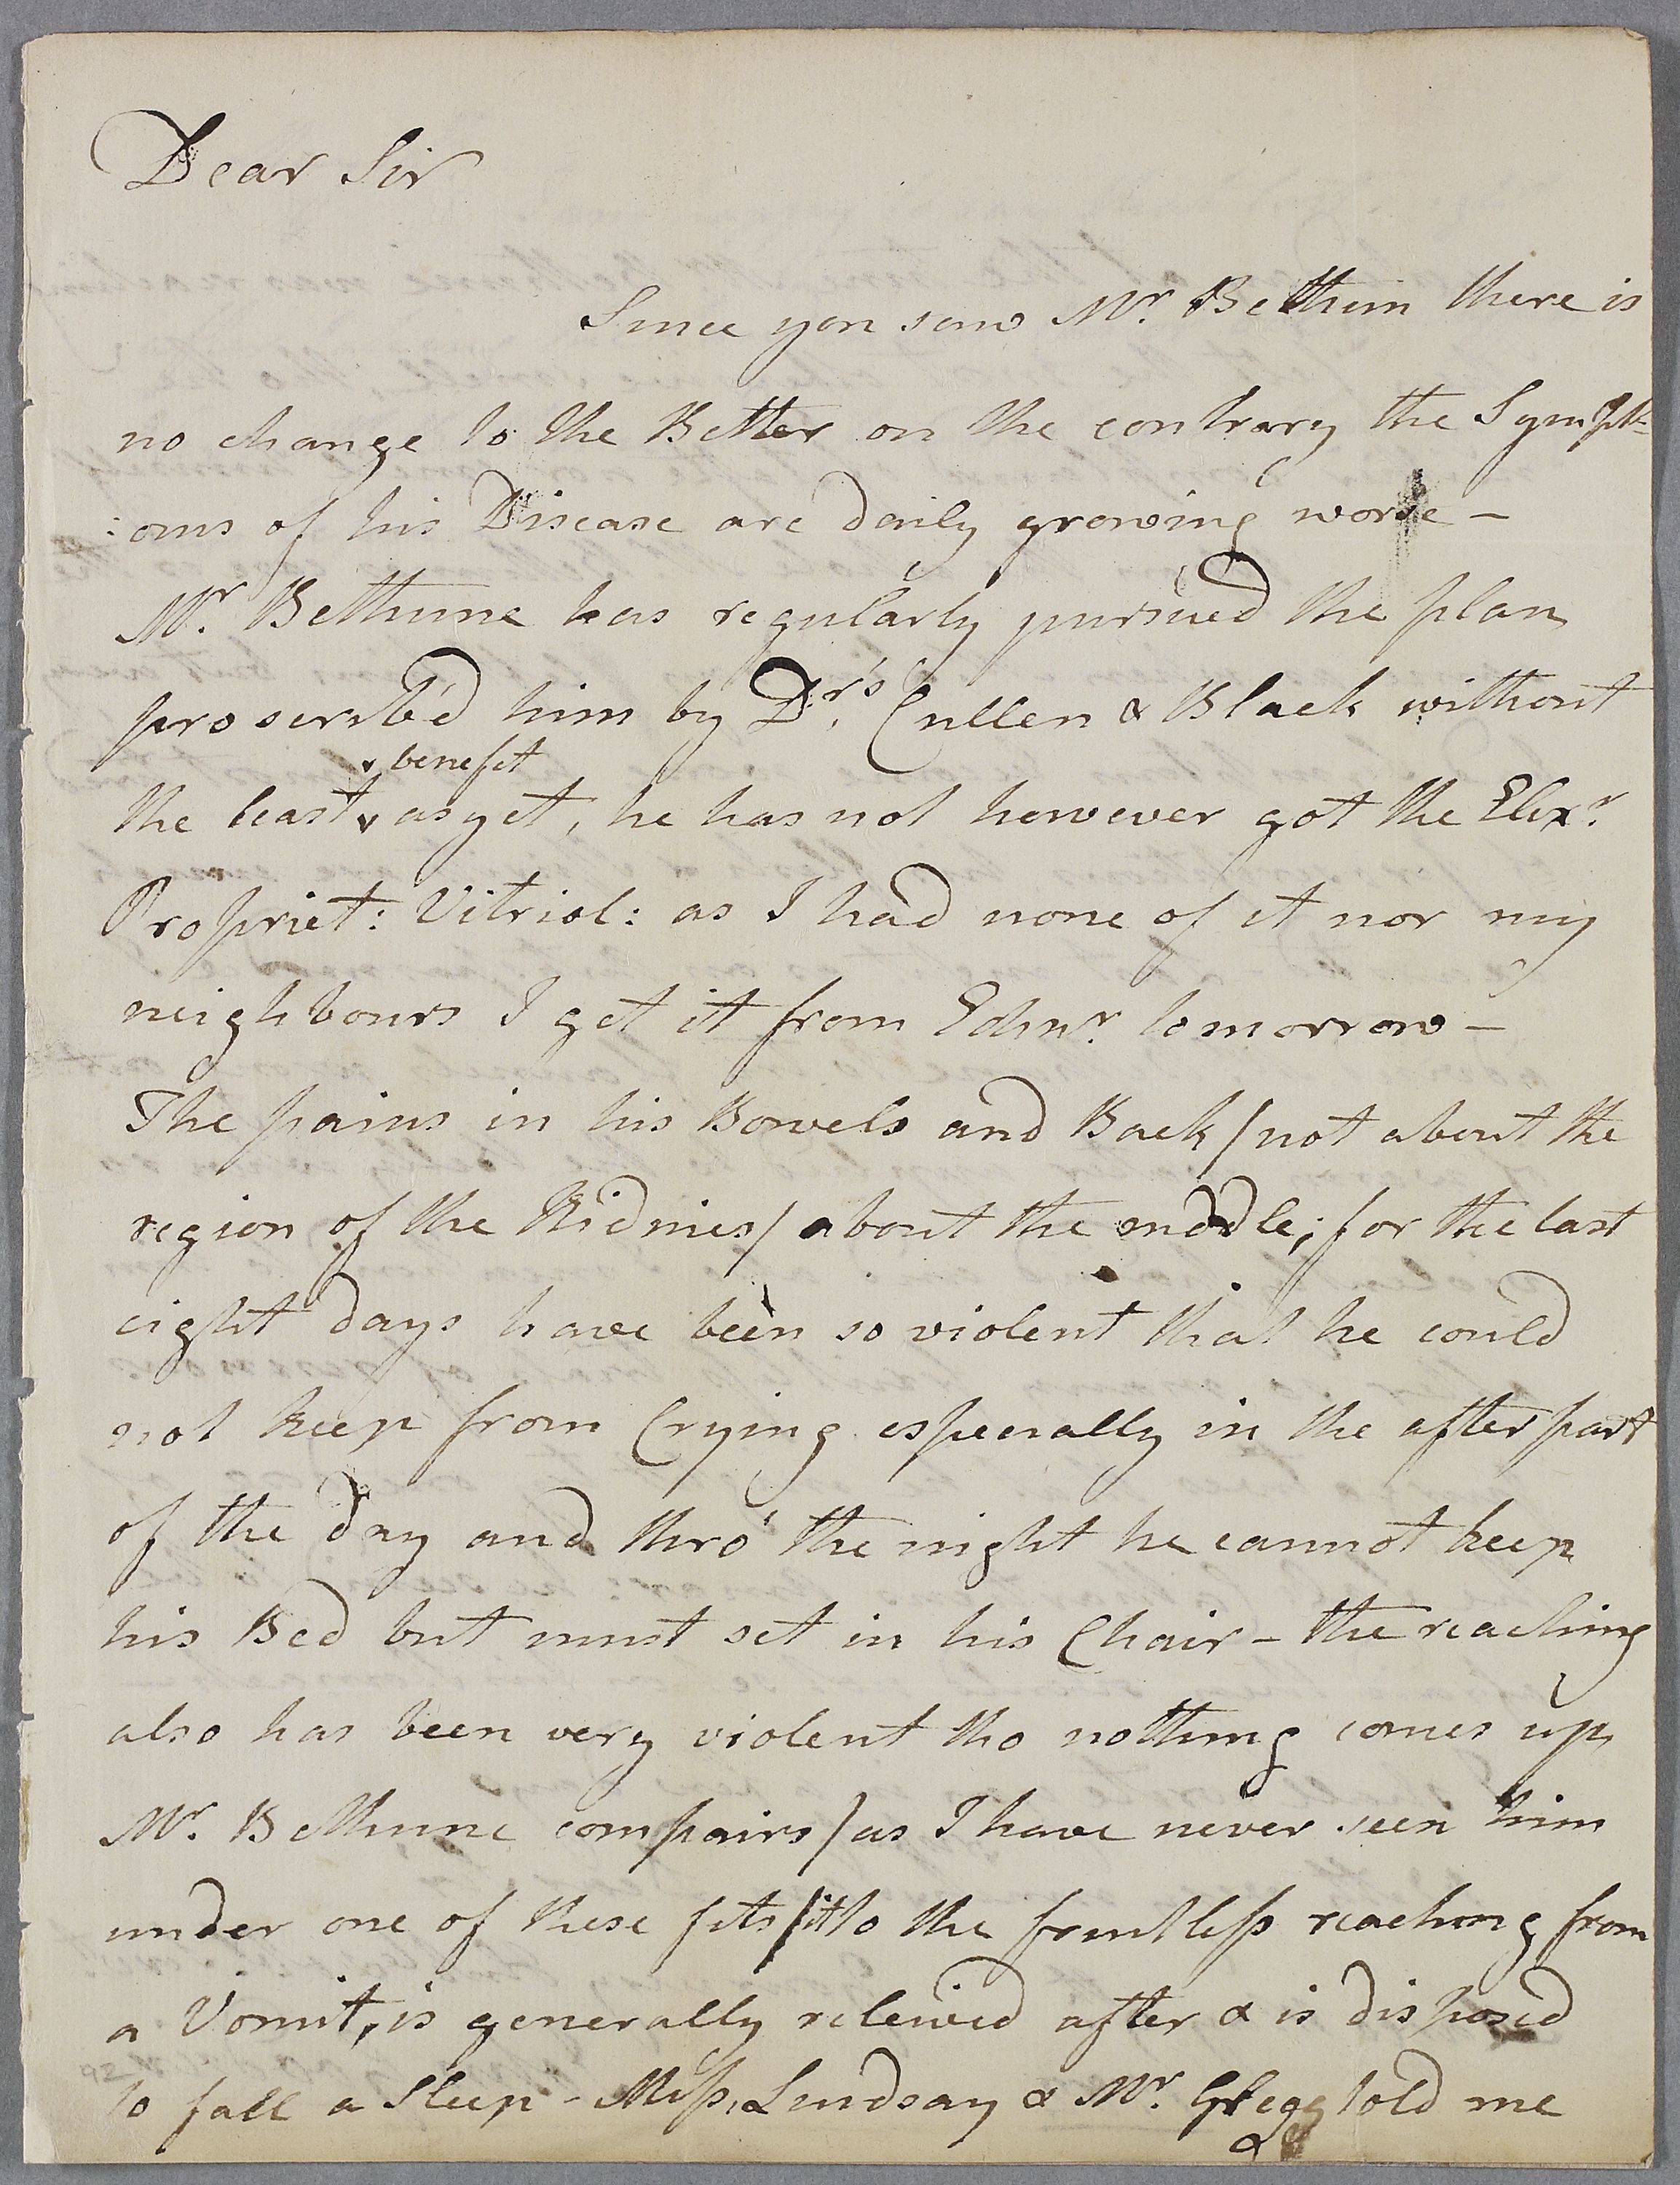 Dear Sir
Since you saw Mr. Bethun there is
no change to the Better on the contrary the Sympt=
:oms of his Disease are daily growing worse –
Mr. Bethune has regularly pursued the plan
proscrib'd him by Dr.'s Cullen & Black without
benefit
the least as yet, he has not however got the Elixr.
Propriet: Vitriol: as I had none of it nor my
neighbours I get it from Edinr. tomorrow –
The pains in his Bowels and Back / not about the
region of the Kidnies / about the middle; for the last
eight days have been so violent that he could
not keep from Crying especially in the after part
of the day and thro' the night he cannot keep
his Bed but must set in his Chair – the reaching
also has been very violent tho nothing comes up,
Mr. Bethune compairs / as I have never seen him
under one of these fits / it to the fruitless reaching from
a Vomit, is generally releived after & is disposed
to fall a Sleep – Miss Lindsay & Mr. Gregg told me